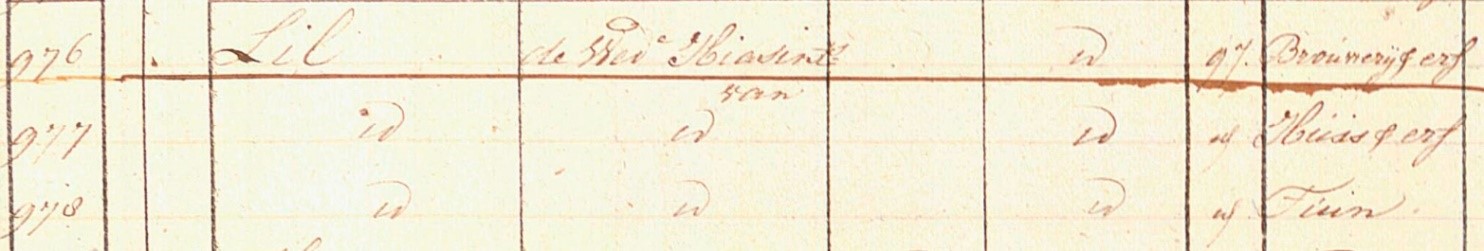 976 . Lil de Wed.e Hiasinte id 97. Brouwerij & erf
van
977 id id id id Huis & erf
978 id id id id Tuin.